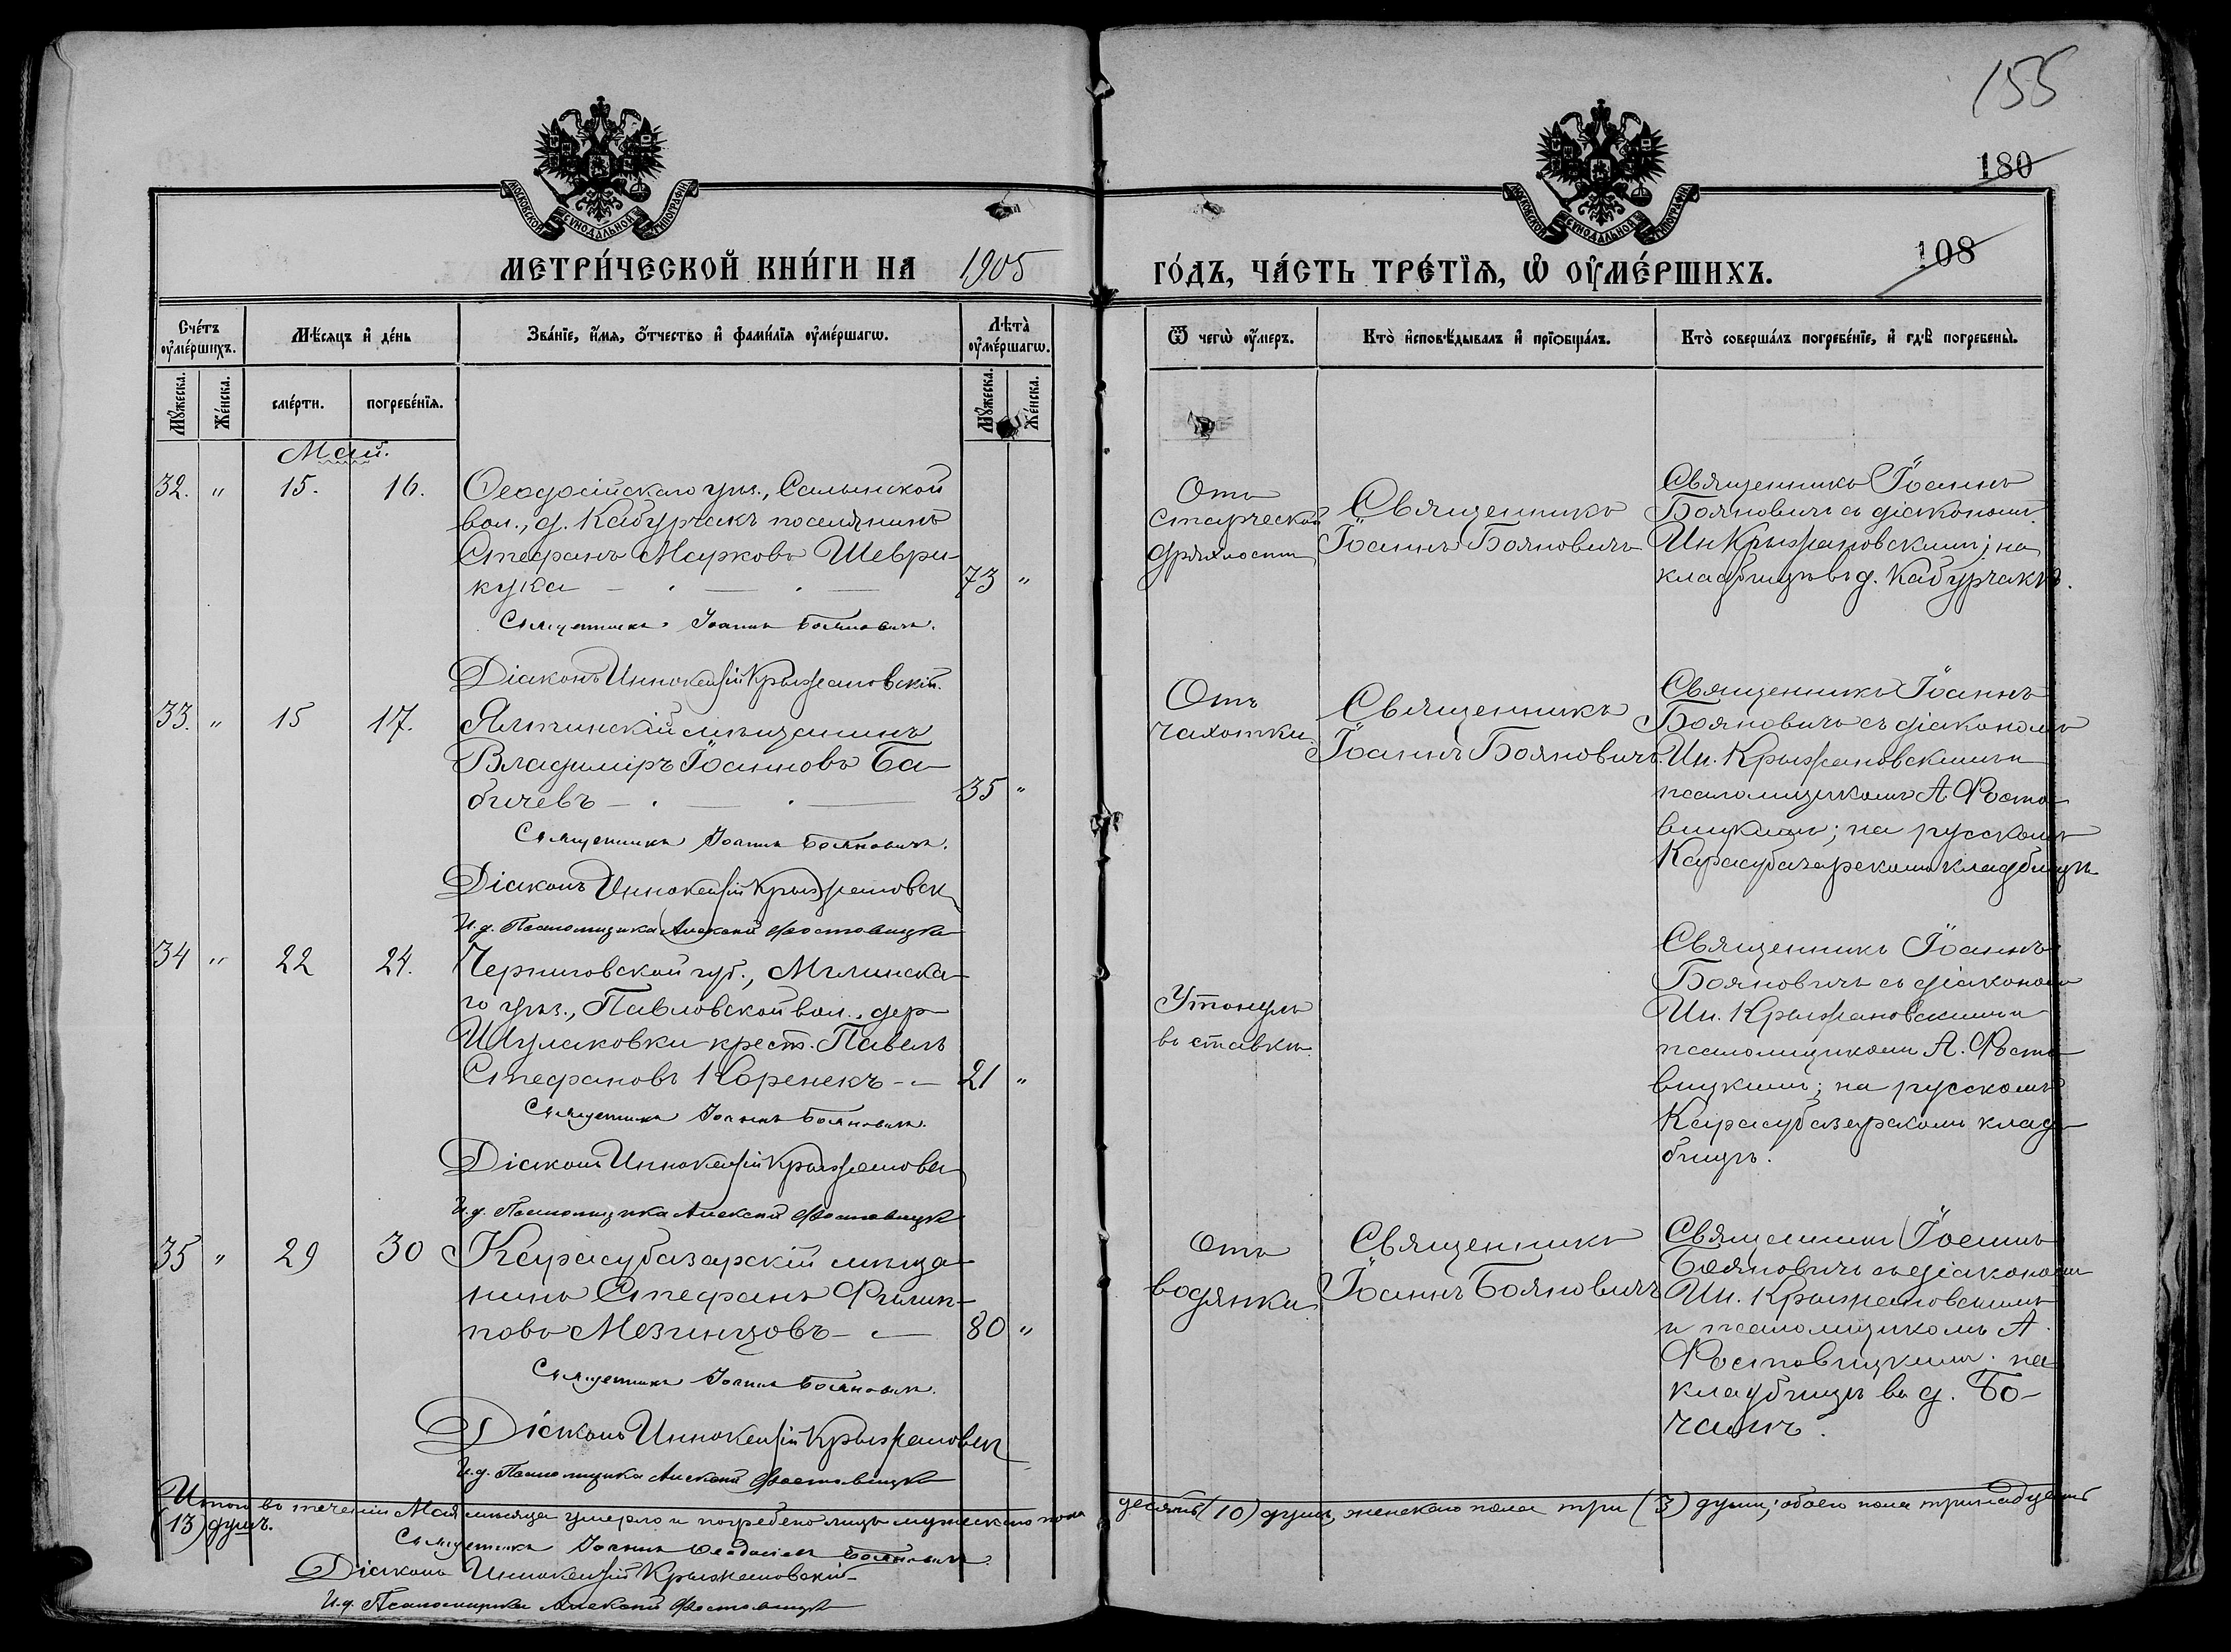 155
180
108
МОСКОВСКОЙ СѴНОДАЛЬНОЙ ТИПОГРАФІИ
МОСКОВСКОЙ СѴНОДАЛЬНОЙ ТИПОГРАФІИ
МЕТРИ́ЧЕСКОЙ КНИ́ГИ НА 1905 ГО́ДЪ, ЧА́СТЬ ТРЕ́ТЇѦ, Ѡ҆ ОУ҆МЕ́РШИХЪ.
Сче́тъ оу҆ме́ршихъ.
Мѣ́сяцъ и҆ де́нь
Зва́нїе, и҆́мѧ, ѻ҆́тчество и҆ фами́лїѧ оу҆ме́ршагѡ.
Лѣ́та оу҆ме́ршагѡ.
Ѿ чегѡ̀ оу҆́меръ.
Кто̀ и҆сповѣ́дывалъ и҆ прїѻбща́лъ.
Кто̀ соверша́лъ погребе́нїе, и҆ гдѣ̀ погребены̀.
Мꙋ́жеска.
Же́нска.
сме́рти.
погребе́нїѧ.
Мꙋ́жеска.
Же́нска.
Май.
32. " 15. 16.
Ѳеодосійскаго уѣз., Салынской
вол., д. Кабурчакъ поселянинъ
Стефанъ Марковъ Шеври-
кука 73 "
Священникъ Іоаннъ Бояновичъ.
Діаконъ Иннокентій Крыжановскій.
Отъ
старческой
дряхлости
Священникъ
Іоаннъ Бояновичъ
Священникъ Іоаннъ
Бояновичъ съ діакономъ
Ин Крыжановскимъ; на
кладбищѣ въ д. Кабурчакъ.
33. " 15 17.
Ялтинскій мѣщанинъ
Владиміръ Іоанновъ Ба-
бичевъ 35 "
Священникъ Іоаннъ Бояновичъ.
Діаконъ Иннокентій Крыжановск
И. д. Псаломщика Алексій Фостовицкі
Отъ
чахотки.
Священникъ
Іоаннъ Бояновичъ.
Священникъ Іоаннъ
Бояновичъ съ діакономъ
Ин. Крыжановскимъ и
псаломщикомъ А Фосто
вицкимъ; на русскомъ
Карасубазарскомъ кладбищѣ
34 " 22 24.
Черниговской губ., Мглинска-
го уѣз., Павловской вол., дер
Шулаковки крест. Павелъ
Стефановъ Коренекъ 21 "
Священникъ Іоаннъ Бояновичъ.
Діаконъ Иннокентій Крыжановск
И. д. Псаломщика Алексій Фостовицкі
Утонулъ
въ ставкѣ.
Священникъ Іоаннъ
Бояновичъ съ діакономъ
Ин. Крыжановскимъ и
псаломщикомъ А. Фосто
вицкимъ; на русскомъ
Карасубазарскомъ клад-
бищѣ.
35 " 29 30
Карасубазарскій мѣща-
нинъ Стефанъ Филип-
повъ Мезинцовъ 80 "
Священникъ Іоаннъ Бояновичъ.
Діаконъ Иннокентій Крыжановск
И. д. Псаломщика Алексій Фостовицкі
Отъ
водянки
Священникъ
Іоаннъ Бояновичъ
Священникъ Іоаннъ
Бояновичъ съ діакономъ
Ин. Крыжановскимъ
и псаломщикомъ А.
Фостовицкимъ. на
кладбищѣ въ д. Бо-
чалъ.
Итого въ теченіи Мая мѣсяца умерло и погребено лицъ мужескаго пола десять (10) душъ, женскаго пола три (3) души; обоего пола тринадцать
(13) душъ.
Священникъ Іоаннъ Бояновичъ.
Діаконъ Иннокентій Крыжановскій
И. д. Псаломщика Алексій Фостовицкі